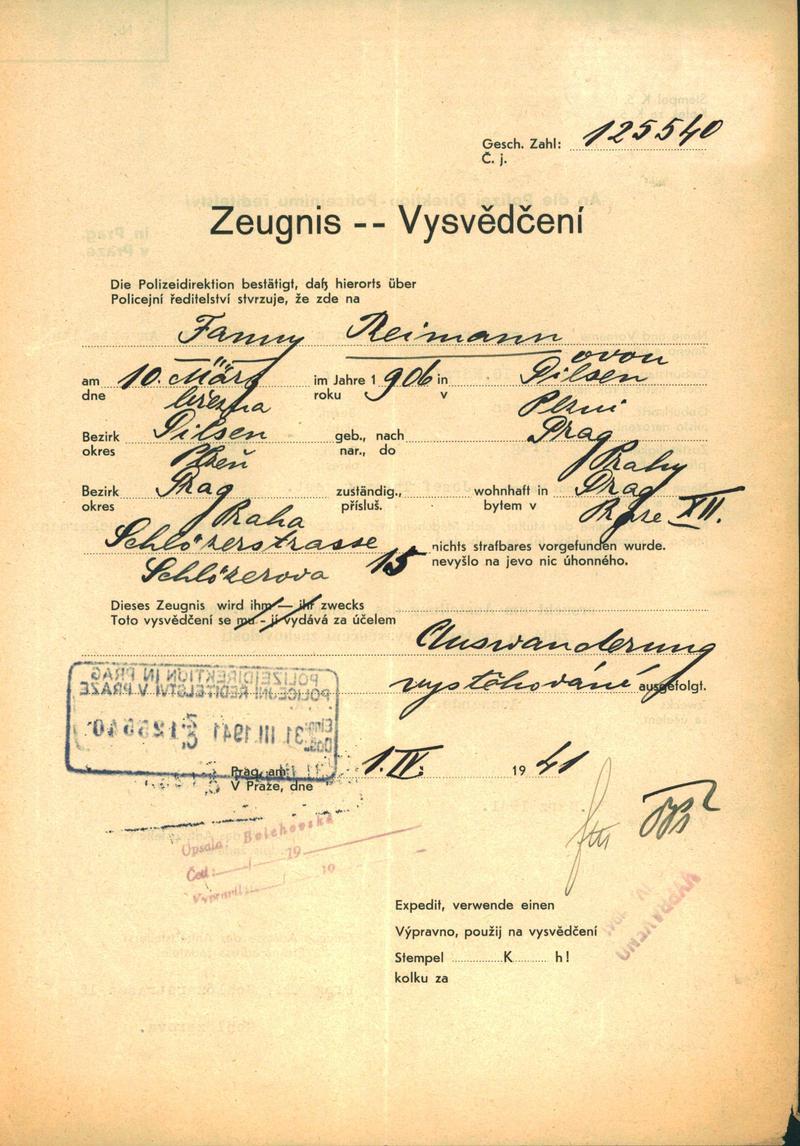 Gesch. Zahl: 125540
Č. j.
Zeugnis -- Vysvědčení
Die Polizeidirektion bestätigt, daß hierorts über
Policejní ředitelství stvrzuje, že zde na
Fanny Reimann
ovou
am 10. März im Jahre 1906 in Pilsen
dne března roku v Plzni
Bezirk Pilsen geb., nach Prag
okres Plzeň nar., do Prahy
Bezirk Prag zuständig., wohnhaft in Prag
okres Praha přísluš. bytem v Praze XII.
Schlözerstrasse nichts strafbares vorgefunden wurde.
Schlözerova 15 nevyšlo na jevo nic úhonného.
Dieses Zeugnis wird ihm — ihr zwecks
Toto vysvědčení se mu - jí vydává za účelem
Auswanderung
vystěhování ausgefolgt.
POLIZEIDIREKTION IN PRAG
POLICEJNÍ ŘEDITELSTVÍ V PRAZE
31 III 1941 125540
Prag, am 1. IV. 1941
V Praze, dne
Opsala: Belchovská
Četl: / 19
Vypravil: / 19
Expedit, verwende einen
Výpravno, použij na vysvědčení
VYPRAVENO
Stempel K h!
kolku za